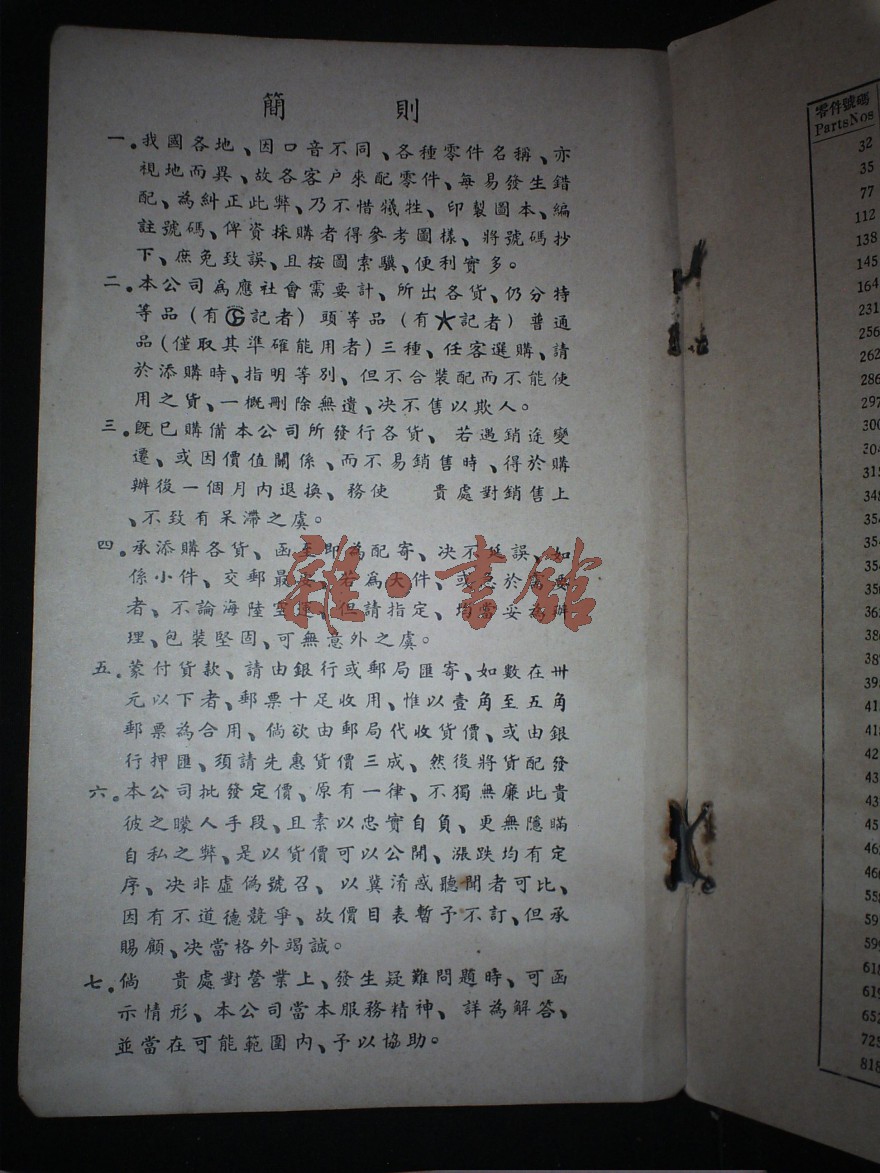 簡 則
一。我國各地、因口音不同、各種零件名稱、亦
視地而異、故各客户來配零件、每易發生錯
配、為糾正此弊、乃不惜犧牲、印製圖本、編
註號碼、俾資採購者得參考圖樣、將號碼抄
下、庶免致誤、且按圖索驥、便利實多。
二。本公司為應社會需要計、所出各貨、仍分特
等品(有G記者)頭等品(有★記者)普通
品(僅取其準確能用者)三種、任客選購、請
於添購時、指明等別、但不合裝配而不能使
用之貨、一概刪除無遺、决不售以欺人。
三。既已購備本公司所發行各貨、若遇銷途變
遷、或因價值關係、而不易銷售時、得於購
辦後一個月内退換、務使 貴處對銷售上
、不致有呆滯之虞。
四。承添購各貨、函至即為配寄、决不延誤、如
係小件、交郵最妥、若爲大件、或急於需要
者、不論海陸空運、但請指定、均當妥為辦
理、包裝堅固、可無意外之虞。
五。蒙付貨款、請由銀行或郵局匯寄、如數在卅
元以下者、郵票十足收用、惟以壹角至五角
郵票為合用、倘欲由郵局代收貨價、或由銀
行押匯、須請先惠貨價三成、然後將貨配發
六。本公司批發定價、原有一律、不獨無廉此貴
彼之矇人手段、且素以忠實自負、更無隱瞞
自私之弊、是以貨價可以公開、漲跌均有定
序、决非虛偽號召、以冀淆惑聽聞者可比、
因有不道德競爭、故價目表暫予不訂、但承
賜顧、决當格外竭誠。
七。倘 貴處對營業上、發生疑難問題時、可函
示情形、本公司當本服務精神、詳為解答、
並當在可能範圍内、予以協助。
雜·書館
零件號碼
PartsNos
32
35
77
112
138
145
164
231
256
262
286
297
300
304
315
348
354
354
354
350
362
386
387
395